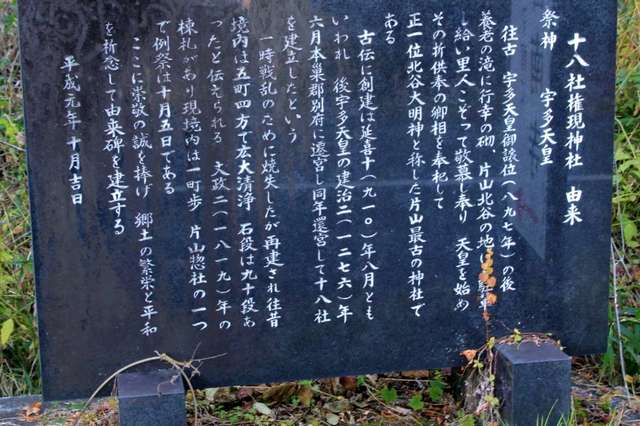 十八社権現神社　由来
祭神　宇多天皇
往古　宇多天皇御譲位(八九七年)の後
養老の滝に行幸の砌　片山北谷の地に
し給い里人こぞって敬慕し奉り　天皇を始め
その折供奉の卿相を奉祀して
正一位北谷大明神と称した片山最古の神社で
ある
古伝に創建は延喜十(九一〇)年八月とも
いわれ　後宇多天皇の建治二(一二七六)年
六月本巣郡別府に遷宮し同年還宮して十八社
を建立したという
一時戦乱のために焼失したが再建され往昔
境内は五町四方で広大清浄　石段は九十段あ
ったと伝えられる　文政二(一八一九)年の
棟札があり現境内は一町歩　片山惣社の一つ
で例祭は十月五日である
ここに崇敬の誠を捧げ　郷土の繁栄と平和
を祈念して由来碑を建立する
平成元年　十月吉日